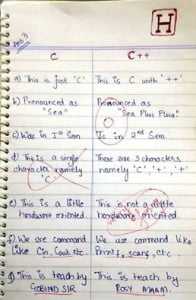 H
Ans 3
C
C++
a) This is just 'C'
This is C with '++'
b) Pronounced as
"Sea"
Pronounced as
"Sea Plus Plus"
c) Was in Ist Sem
Is in 2nd Sem
d) This is a single
character namely
'C'
There are 3 characters
namely 'C', '+', '+'
e) This is a little
hardware oriented.
This is not a little
hardware oriented.
f) We use command
like Cin, Cout etc.
We use command like
Printf, scanf, etc..
g) This is teach by
GOBIND SIR
This is teach by
ROLY MAAM.